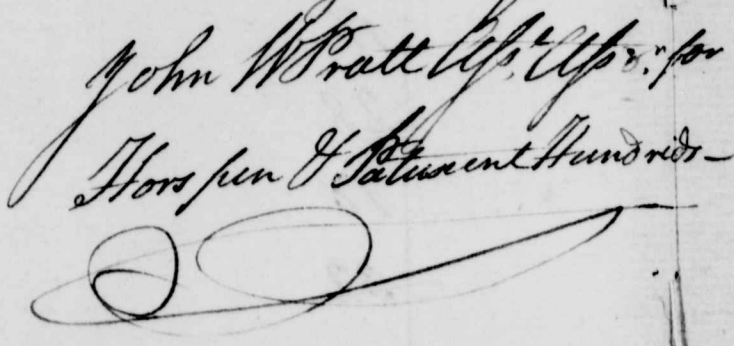 John W Pratt Asst. Assr. for
Horspen & Patuxent Hundreds —